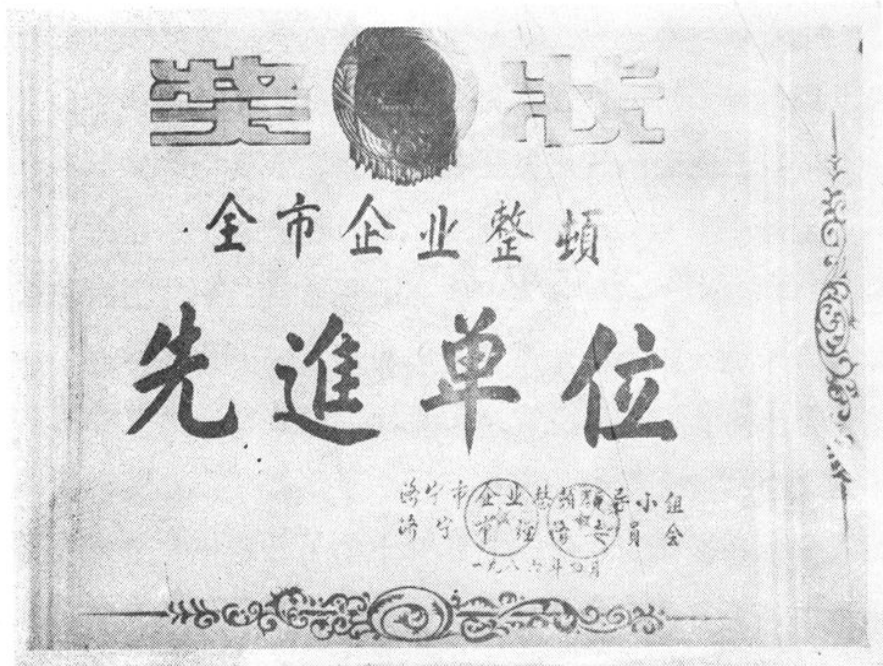 奖状
全市企业整顿
先進单位
济宁市企业整顿领导小组
济宁市经济委员会
一九八六年四月